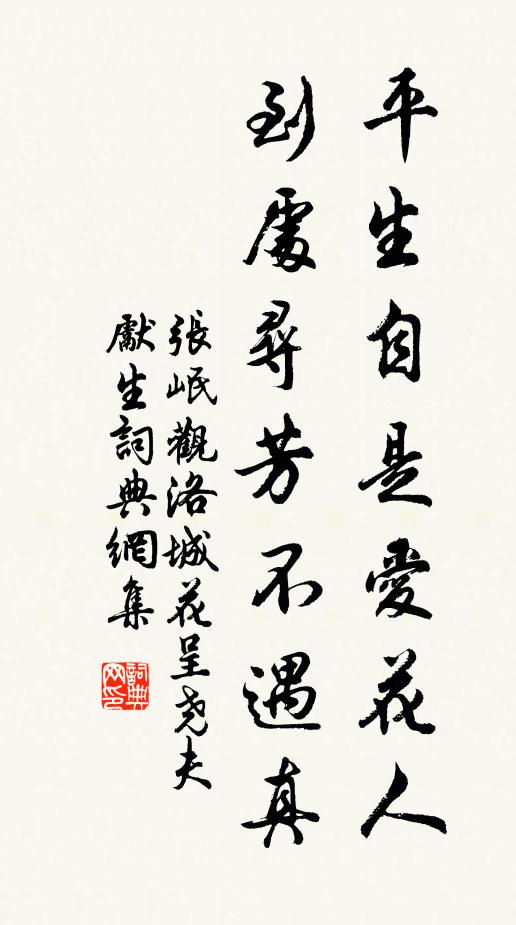 平生自是愛花人
到處尋芳不遇真
張岷觀洛城花呈尧夫
獻生詞典網集
詞典网印